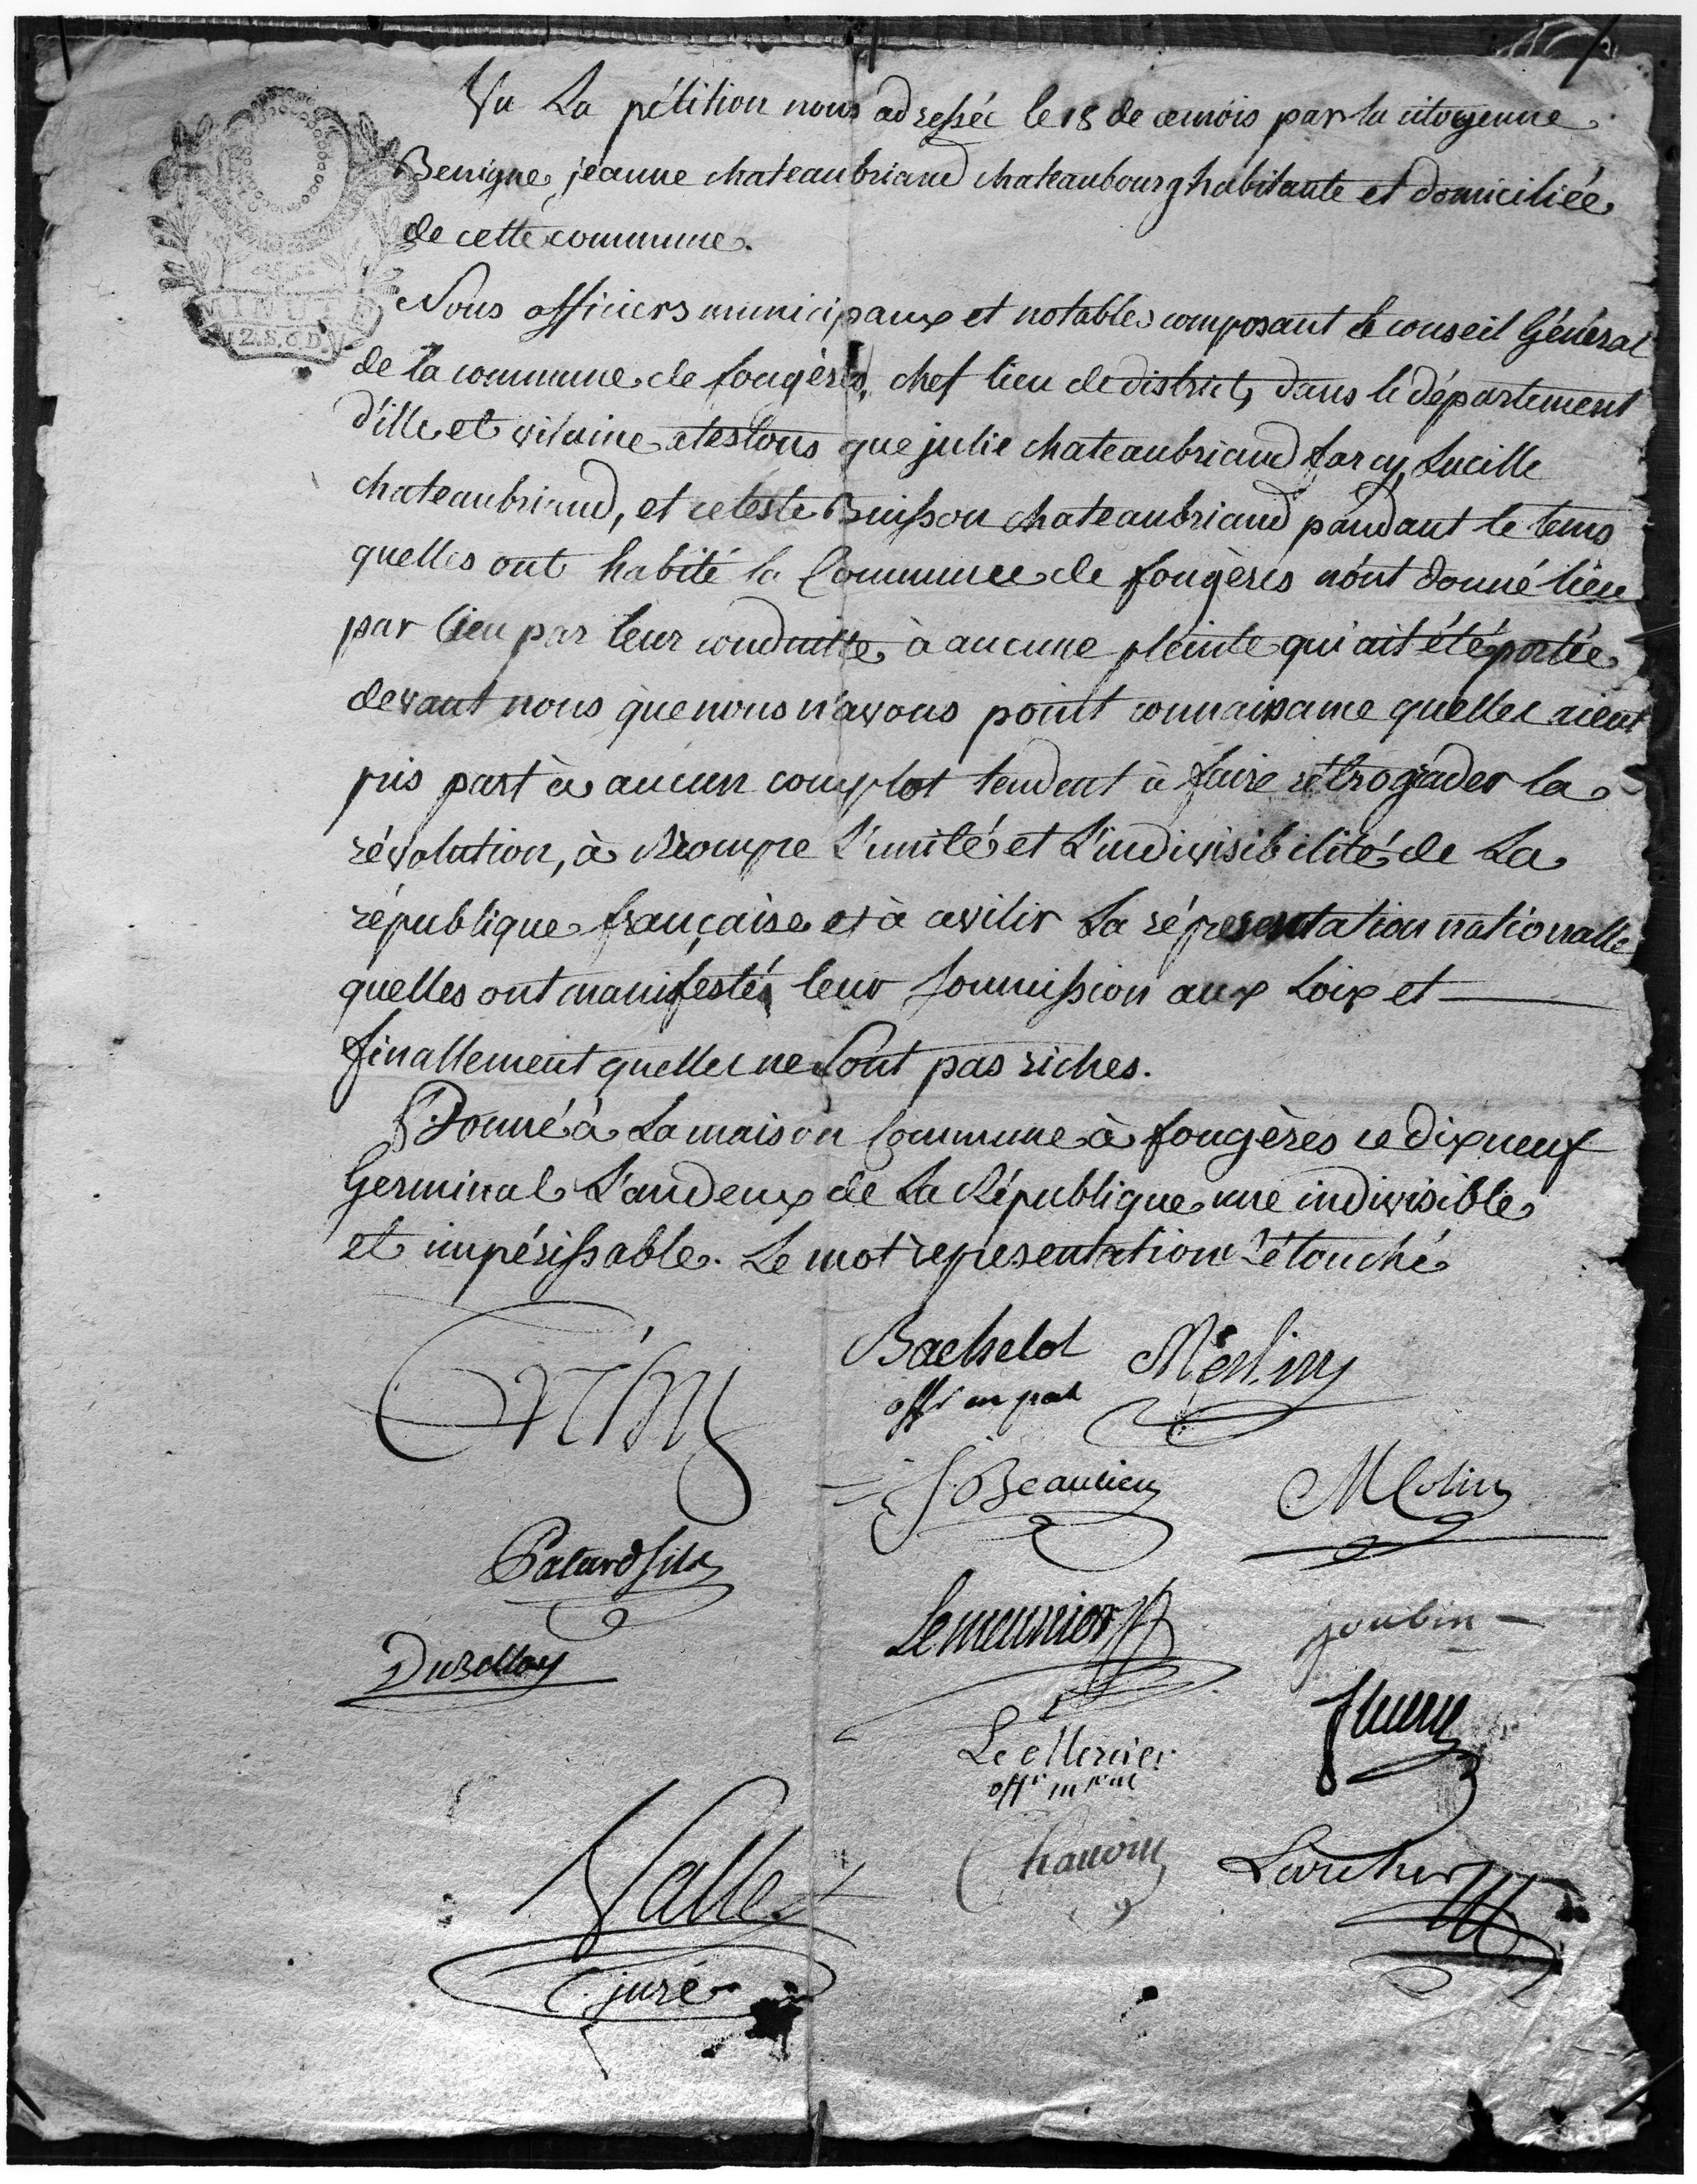 Vu La pétition nous adressée le 18 de ce mois par la citoyenne
Benigne jeanne chateaubriand chateaubourg habitante et domiciliée
de cette commune.
MINUTE
2.S.6.D.
Nous officiers municipaux et notables composant le conseil Général
de la commune de fougères, chef lieu de district, dans le département
d'ille et vilaine atestons que julie chateaubriand farcy, Lucille
chateaubriand, et celeste Buisson chateaubriand pandant le tems
quelles ont habité la Commune de fougères n'ont donné lieu
par lieu par leur conduitte à aucune pleinte qui ait été portée
devant nous que nous n'avons point connaissance quelles aient
pris part à aucun complot tendent à faire rétrograder la
révolution, à Rrompre L'unité et L'indivisibilité de La
république française et à avilir La répresentation nationalle
quelles ont manifesté leur soumission aux Loix et
finallement quelles ne sont pas riches.
Donné à La maison Commune à fougères ce dix neuf
Germinal L'an deux de La République une indivisible
et impérissable. Le mot representation rétouché
Bachelot
off. m pal
Merlin
J Beaulieu
M Colin
Patard fils
Lemeunier
joubin
Dubellay
Le Mercier
off. m pal
fleury
Vallet
Chauvin
Larcher
juré